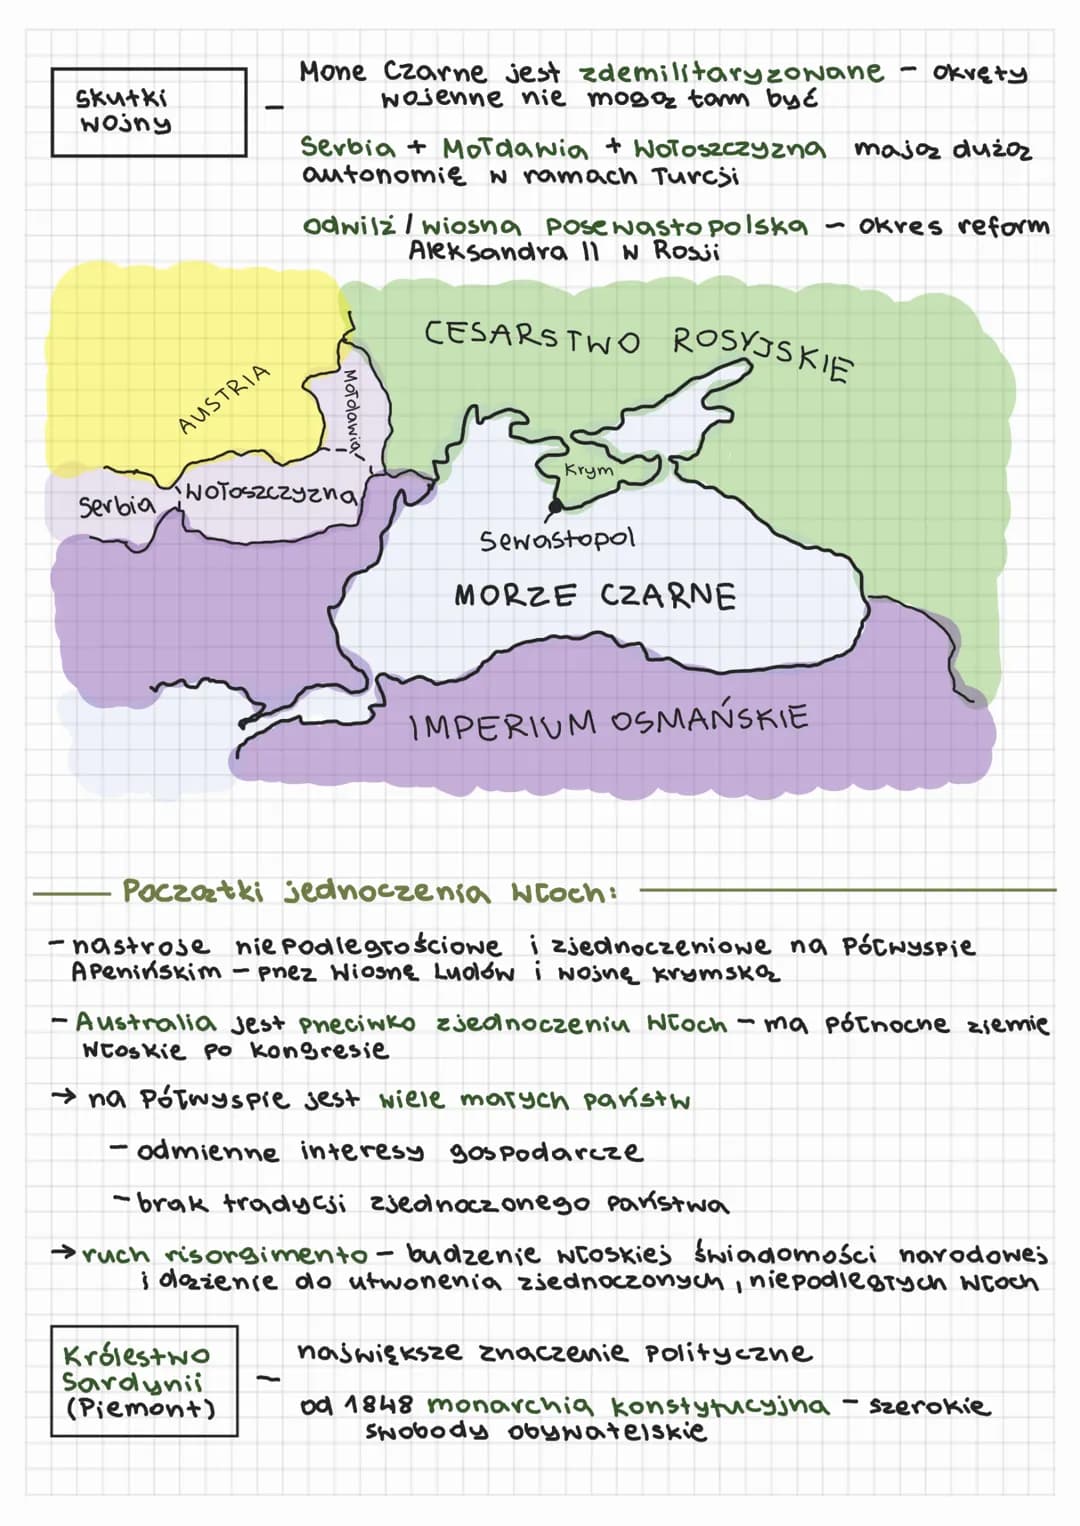 Skutki
wojny
- Morze Czarne jest zdemilitaryzowane - okręty
wojenne nie mogą tam być
Serbia + Mołdawia + Wołoszczyzna mają dużą
autonomię w ramach Turcji
Odwilż / wiosna posewastopolska - okres reform
Aleksandra II w Rosji
CESARSTWO ROSYJSKIE
AUSTRIA
Mołdawia
Krym
Serbia
Wołoszczyzna
Sewastopol
MORZE CZARNE
IMPERIUM OSMAŃSKIE
Początki jednoczenia Włoch:
- nastroje niepodległościowe i zjednoczeniowe na Półwyspie
Apenińskim - przez Wiosnę Ludów i wojnę krymską
- Australia jest przeciwko zjednoczeniu Włoch - ma północne ziemie
włoskie po kongresie
→ na Półwyspie jest wiele małych państw
- odmienne interesy gospodarcze
- brak tradycji zjednoczonego państwa
→ ruch risorgimento - budzenie włoskiej świadomości narodowej
i dążenie do utworzenia zjednoczonych, niepodległych Włoch
Królestwo
Sardynii
(Piemont)
- największe znaczenie polityczne
od 1848 monarchia konstytucyjna - szerokie
swobody obywatelskie